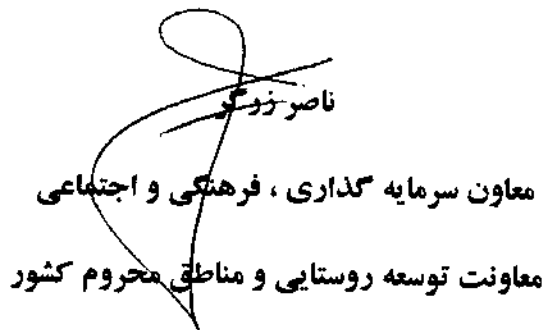 ناصر زرگر
معاون سرمایه گذاری ، فرهنگی و اجتماعی
معاونت توسعه روستایی و مناطق محروم کشور